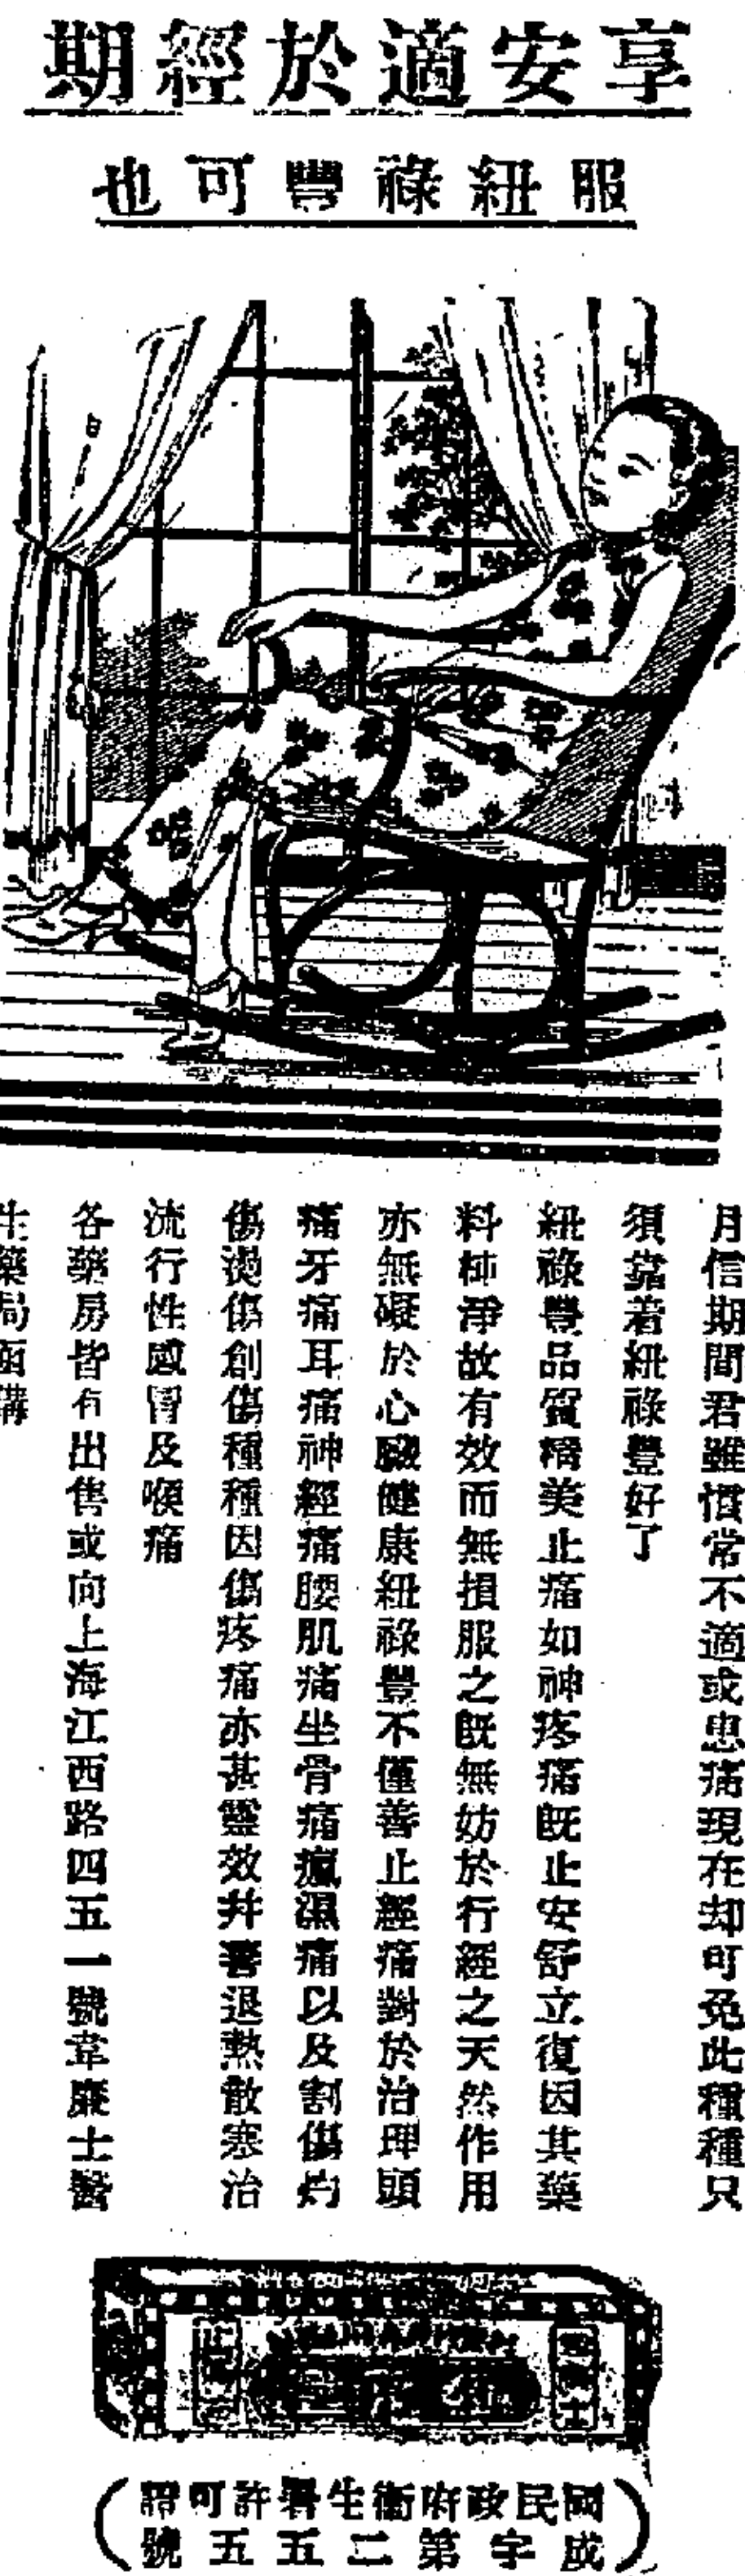 享安適於經期
服紐祿豐可也
月信期間君雖慣常不適或患痛現在却可免此種種只
須靠着紐祿豐好了
紐祿豐品質精美止痛如神疼痛既止安舒立復因其藥
料純淨故有效而無損服之既無妨於行經之天然作用
亦無礙於心臟健康紐祿豐不僅善止經痛對於治理頭
痛牙痛耳痛神經痛腰肌痛坐骨痛瘋濕痛以及割傷灼
傷燙傷創傷種種因傷疼痛亦甚靈效幷善退熱散寒治
流行性感冒及喉痛
各藥房皆有出售或向上海江西路四五一號韋廉士醫
生藥局函購
國民政府衛生署許可證
成字第二五五號